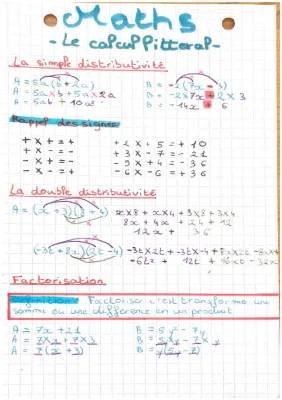 Maths
- Le calcul littéral -
La simple distributivité
A = 5a(b + 2a)
A = 5a x b + 5a x 2a
A = 5ab + 10a²
B = -2(7x - 3)
B = -2 x 7x + 2 x 3
B = -14x + 6
Rappel des signes
+ x + = +
+ x - = -
- x + = -
- x - = +
+2 x + 5 = + 10
+3 x - 7 = - 21
- 9 x + 4 = - 36
- 6 x - 6 = + 36
La double distributivité
A = (x + 3)(8 + 4)
x x 8 + x x 4 + 3 x 8 + 3 x 4
8x + 4x + 24 + 12
12x + 36
(-3t + 8x)(2t - 4)
-3t x 2t + -3t x -4 + 8x x 2t - 8x x 4
-6t² + 12t + 16xt - 32x
Factorisation
Définition : Factoriser c'est transformer une
somme ou une différence en un produit
A = 7x + 21
A = 7 x x + 7 x 3
A = 7(x + 3)
B = 5y² - 7y
B = 5y x y - 7 x y
B = y(5y - 7)